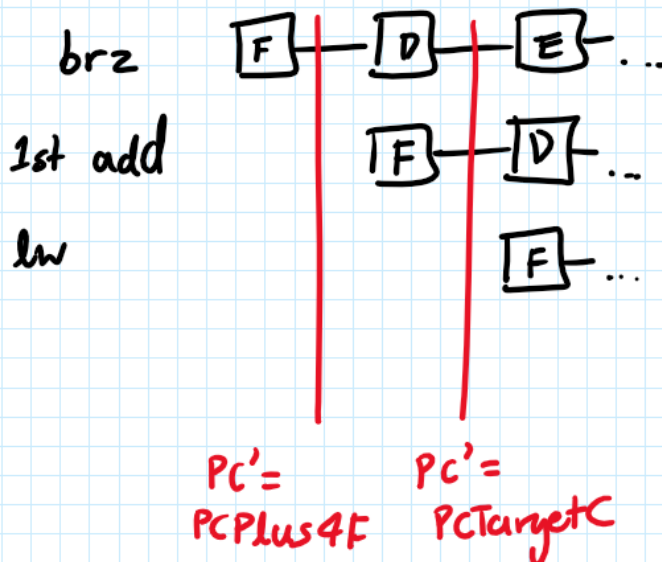 brz F D E ...
1st add F D ...
lw F ...
PC'= PC'=
PCPlus4F PCTargetC